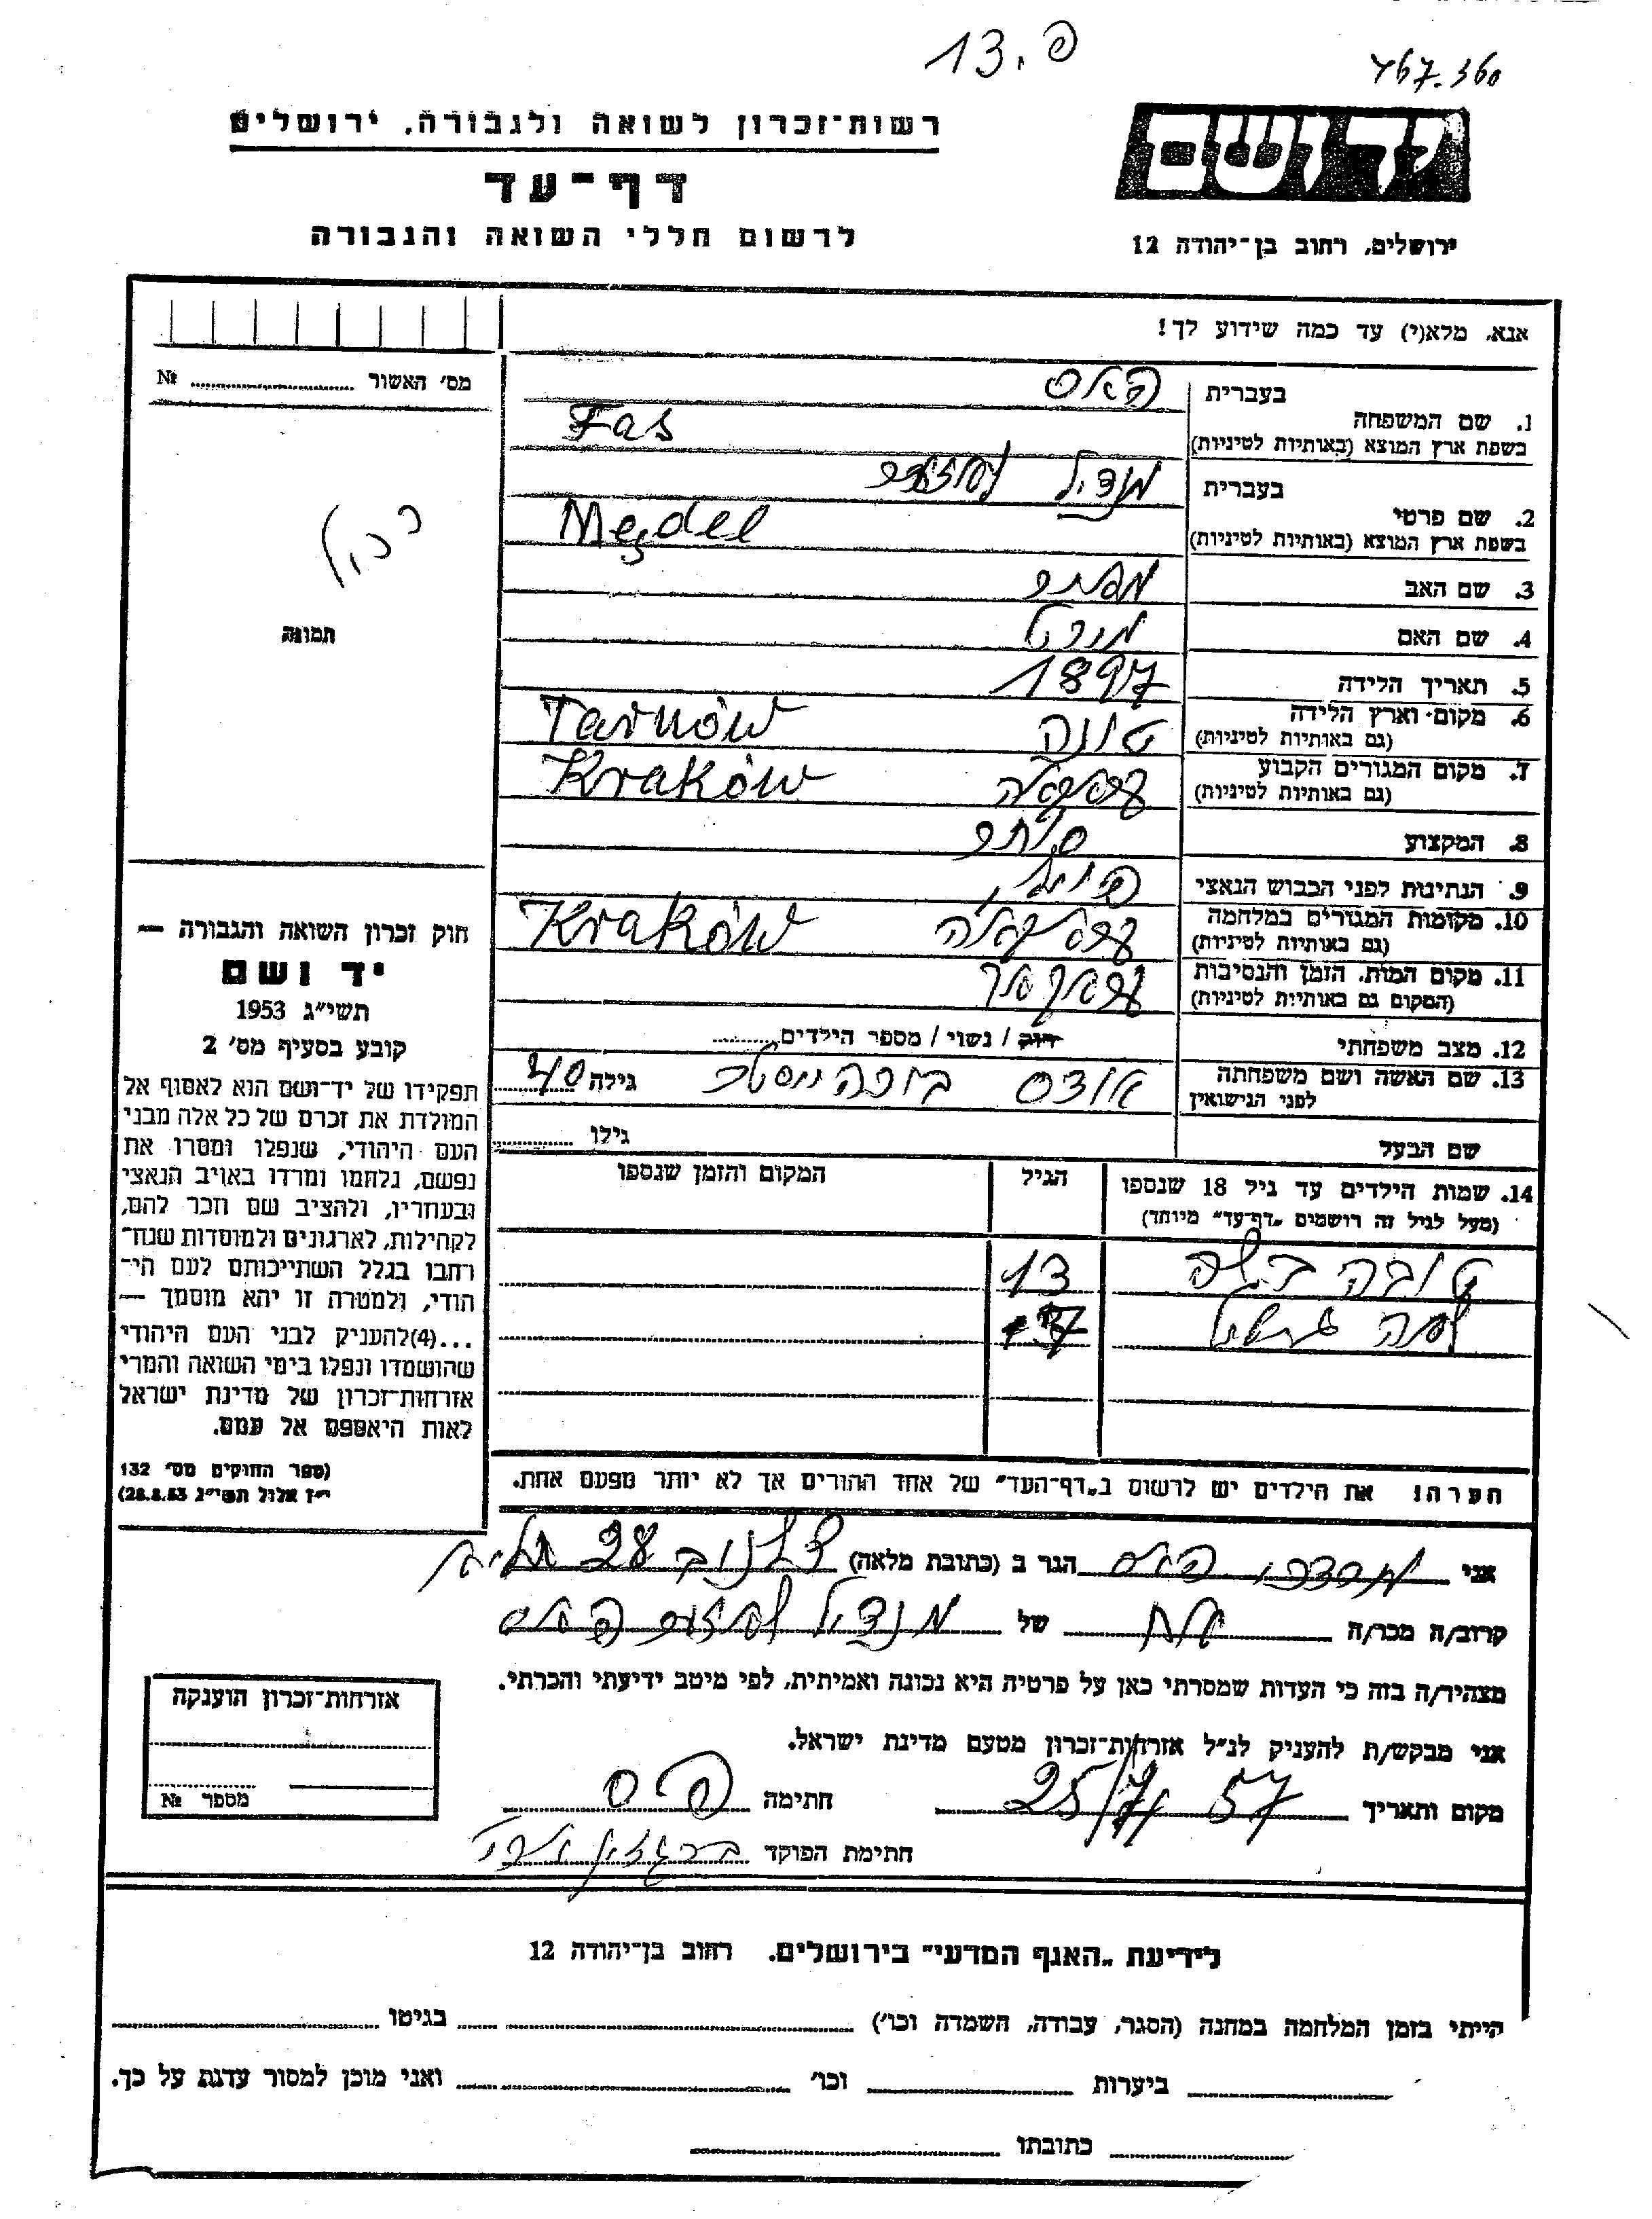 פ. 13
רשות־זכרון לשואה ולגבורה, ירושלים
דף־עד
לרשום חללי השואה והגבורה
יד ושם
ירושלים, רחוב בן־יהודה 12
אנא, מלא(י) עד כמה שידוע לך!
מס׳ האשור № 
תמונה
1. שם המשפחה
בעברית פאס
בשפת ארץ המוצא (באותיות לטיניות) Fas
2. שם פרטי
בעברית מנדיל
בשפת ארץ המוצא (באותיות לטיניות) Mendel
3. שם האב
4. שם האם
5. תאריך הלידה 1897
6. מקום וארץ הלידה
(גם באותיות לטיניות) Tarnów
7. מקום המגורים הקבוע
(גם באותיות לטיניות) Kraków
8. המקצוע סוחר
9. הנתינות לפני הכבוש הנאצי
10. מקומות המגורים במלחמה
(גם באותיות לטיניות) Kraków
11. מקום המות, הזמן והנסיבות
(המקום גם באותיות לטיניות)
12. מצב משפחתי רווק / נשוי / מספר הילדים
13. שם האשה ושם משפחתה
לפני הנישואין גילה 40
שם הבעל גילו
14. שמות הילדים עד גיל 18 שנספו הגיל המקום והזמן שנספו
(מעל לגיל זה רושמים „דף־עד״ מיוחד)
טובה 13
הערה! את הילדים יש לרשום ב„דף־העד״ של אחד ההורים אך לא יותר מפעם אחת.
חוק זכרון השואה והגבורה —
יד ושם
תשי״ג 1953
קובע בסעיף מס׳ 2
תפקידו של יד־ושם הוא לאסוף אל
המולדת את זכרם של כל אלה מבני
העם היהודי, שנפלו ומסרו את
נפשם, נלחמו ומרדו באויב הנאצי
ובעוזריו, ולהציב שם וזכר להם,
לקהילות, לארגונים ולמוסדות שנח־
רבו בגלל השתייכותם לעם הי־
הודי, ולמטרה זו יהא מוסמך —
...(4) להעניק לבני העם היהודי
שהושמדו ונפלו בימי השואה והמרי
אזרחות־זכרון של מדינת ישראל
לאות היאספם אל עמם.
(ספר החוקים מס׳ 132
י״ז אלול תשי״ג 28.8.53)
אני מרדכי פאס הגר ב (כתובת מלאה) 28
קרוב/ה מכר/ה אח של מנדיל פאס
מצהיר/ה בזה כי העדות שמסרתי כאן על פרטיה היא נכונה ואמיתית, לפי מיטב ידיעתי והכרתי.
אני מבקש/ת להעניק לנ״ל אזרחות־זכרון מטעם מדינת ישראל.
מקום ותאריך 25/7 57 חתימה
חתימת הפוקד
אזרחות־זכרון הוענקה
מספר №
לידיעת „האגף המדעי״ בירושלים, רחוב בן־יהודה 12
הייתי בזמן המלחמה במחנה (הסגר, עבודה, השמדה וכו׳) בגיטו
ביערות וכו׳ ואני מוכן למסור עדות על כך.
כתובתו